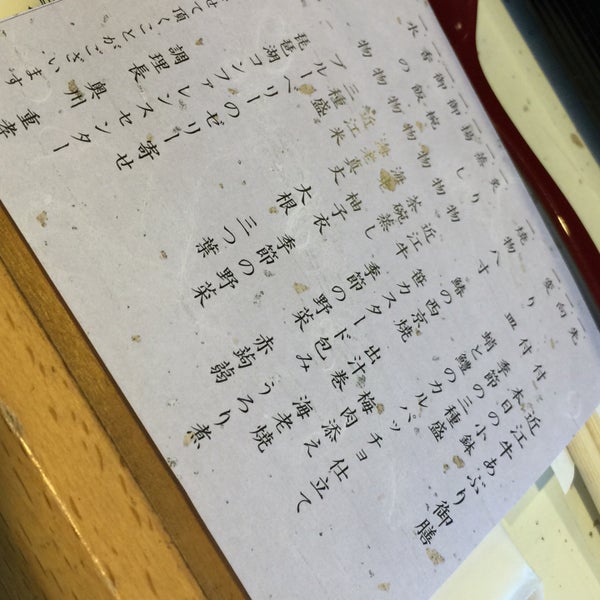 近江牛あぶり御膳
一 先付 本日の小鉢
一 向付 季節の三種盛
一 変り皿 蛸と鱧のカルパッチョ仕立て
一 八寸 鰆の西京焼 出汁巻 梅肉添え 海老
笹カスタード包み うろり煮
赤蒟蒻
一 焼物 近江牛 季節の野菜
一 蒸し物 茶碗蒸し
一 揚物 柚子衣 季節の野菜
一 御椀物 真丈 大根 三つ葉
一 御飯物 近江米
一 香の物 三種盛
一 水物 フルーベリーのゼリー寄せ
琵琶湖コンファレンスセンター
調理長 奥州 重孝
て頂くことがございます